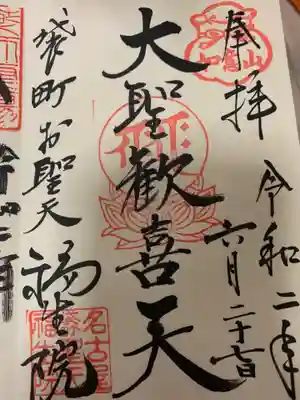 奉拝
令和二年
六月二十七日
大聖歓喜天
袋町お聖天
福生院
名古屋